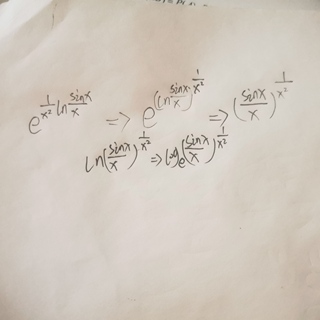 e^{\frac{1}{x^2} \ln \frac{\sin x}{x}} => e^{(\ln \frac{\sin x}{x})^{\frac{1}{x^2}}} => (\frac{\sin x}{x})^{\frac{1}{x^2}}
Ln(\frac{\sin x}{x})^{\frac{1}{x^2}} => e(\frac{\sin x}{x})^{\frac{1}{x^2}}